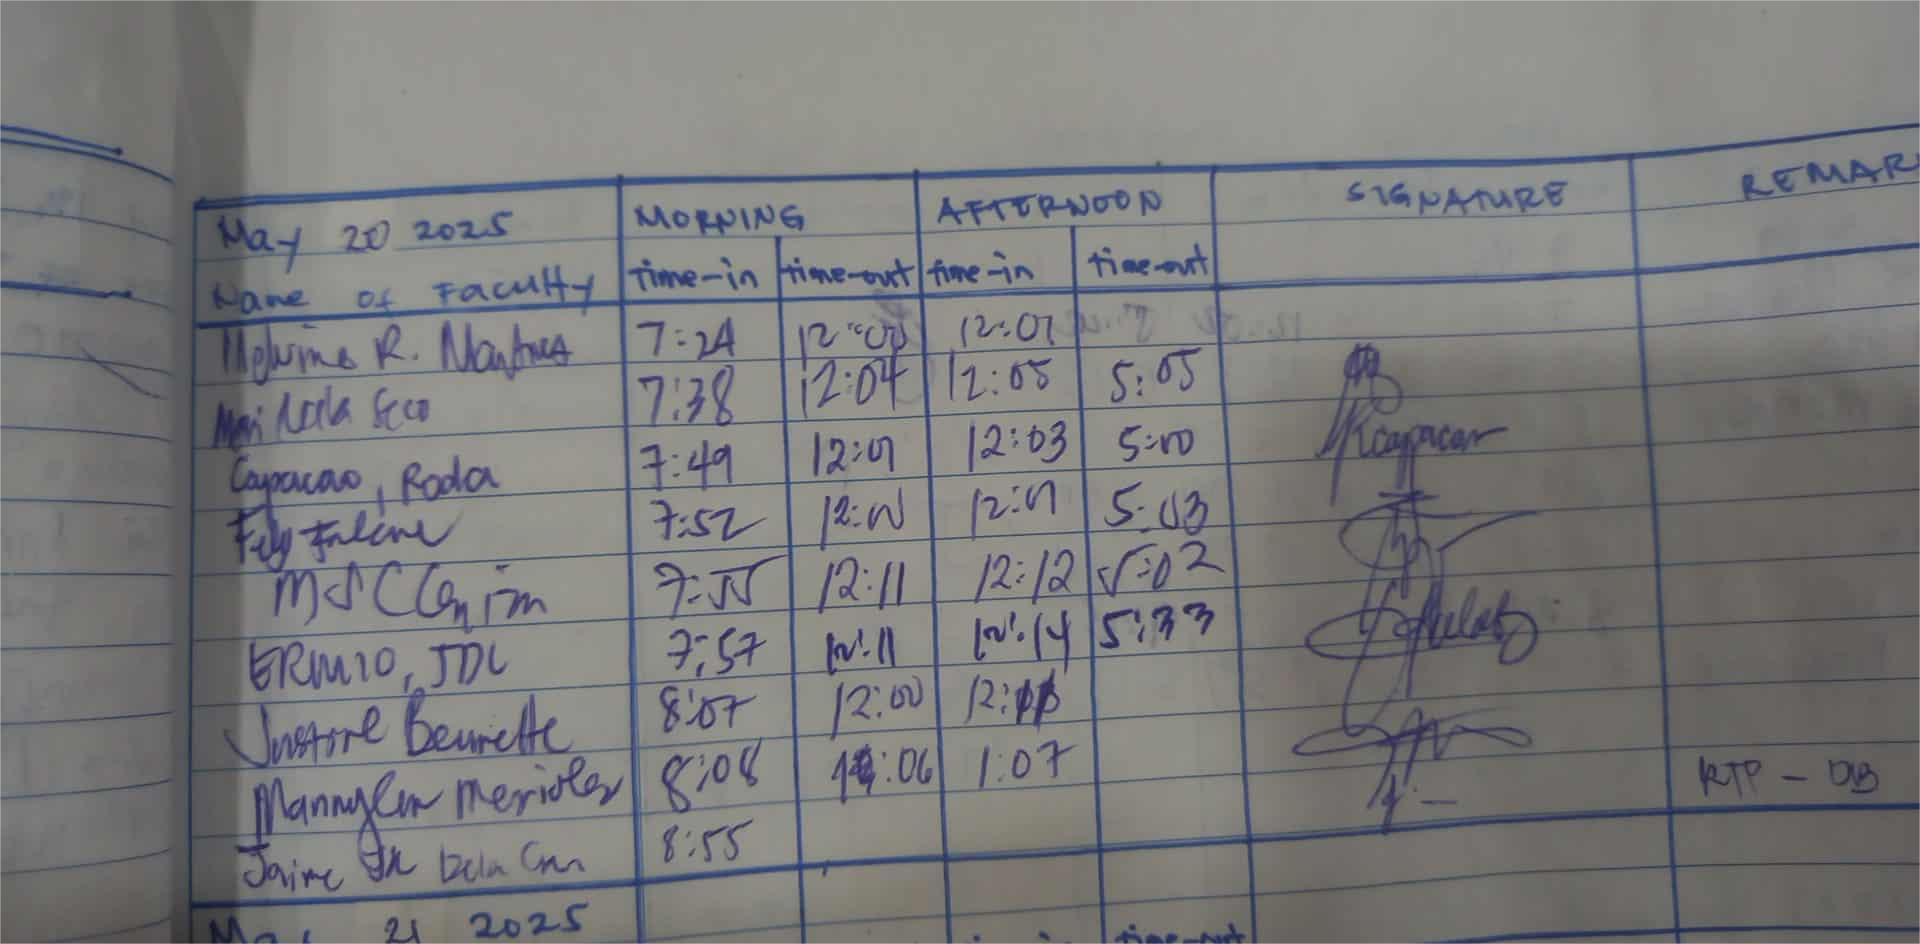 May 20 2025 MORNING AFTERNOON SIGNATURE REMAR
Name of Faculty time-in time-out time-in time-out
R. 7:24 12:00 12:01
Seco 7:38 12:04 12:05 5:05
Capacao, Roda 7:49 12:01 12:03 5:00 Rcapacao
Fely 7:52 12:00 12:01 5:03
MSC 7:55 12:11 12:12 5:02
ERMIO, JDL 7:57 12:11 12:14 5:33
Justine Bennette 8:07 12:00 12:
Mannylen Merioles 8:08 :06 1:07
Jaime Jr Dela Cruz 8:55 RTP - OB
May 21 2025 time-out